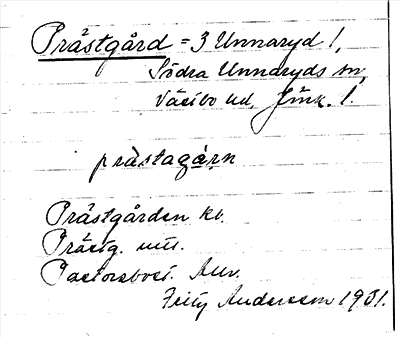 Prästgård = 3 Unnaryd 1,
Södra Unnaryds sn,
Västbo hd, Jönk. l.
prästagạ̊rn
Prästgården kb.
Prästg.
Pastorsbost.
Fritz Andersson 1931.